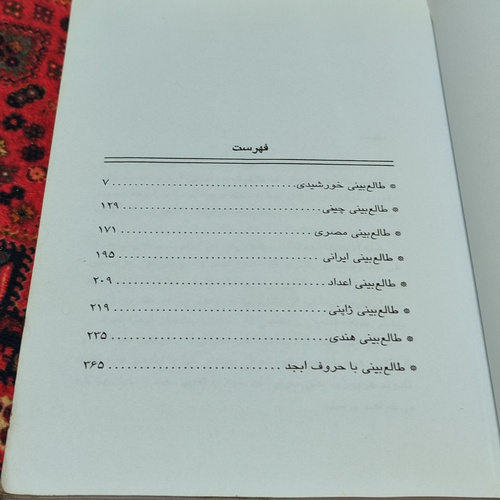 فهرست
* طالع‌بینی خورشیدی................................. ۷
* طالع‌بینی چینی................................. ۱۲۹
* طالع‌بینی مصری................................. ۱۷۱
* طالع‌بینی ایرانی ................................. ۱۹۵
* طالع‌بینی اعداد................................. ۲۰۹
* طالع‌بینی ژاپنی................................. ۲۱۹
* طالع‌بینی هندی................................. ۲۳۵
* طالع‌بینی با حروف ابجد ........................... ۳۶۵